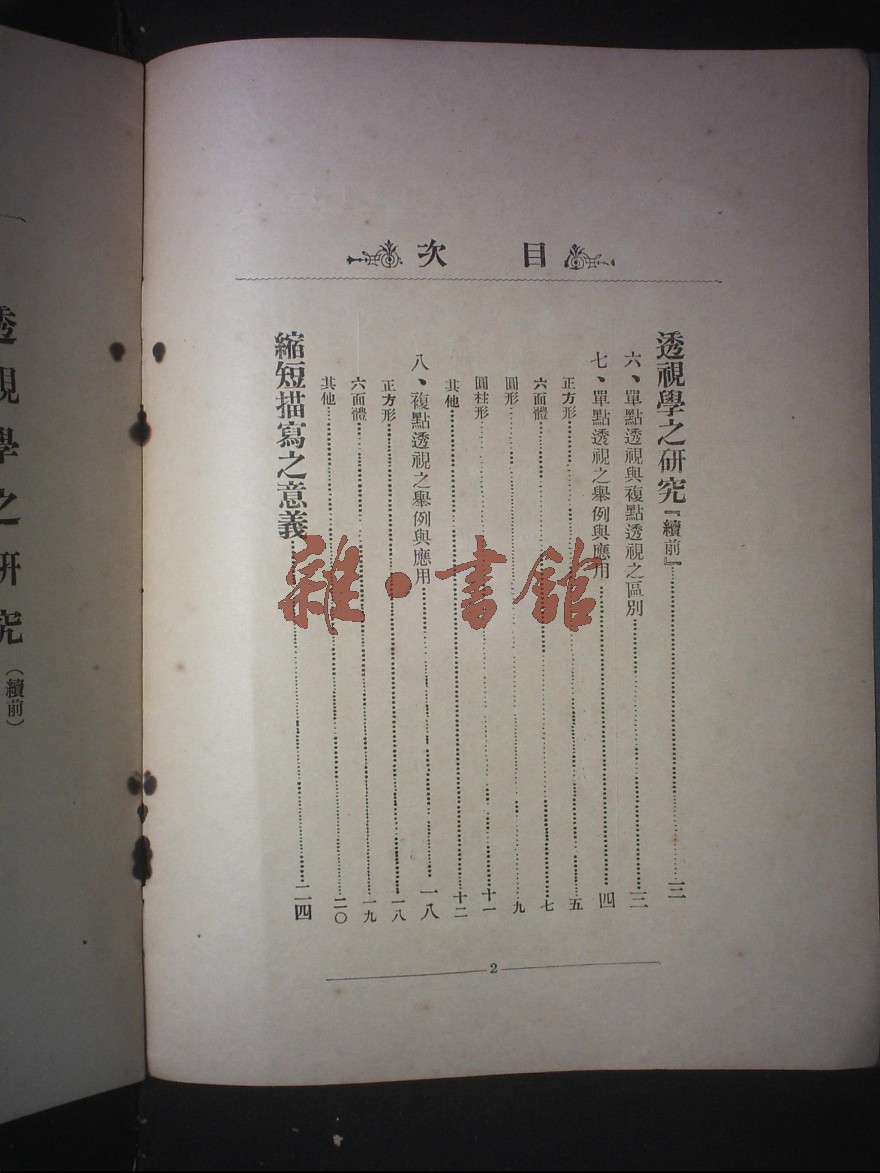 目次
透視學之研究『續前』……三
六、單點透視與複點透視之區別……三
七、單點透視之舉例與應用……四
正方形……五
六面體……七
圓形……九
圓柱形……十一
其他……十二
八、複點透視之舉例與應用……一八
正方形……一八
六面體……一九
其他……二〇
縮短描寫之意義……二四
2
透視學之研究（續前）
雜·書館